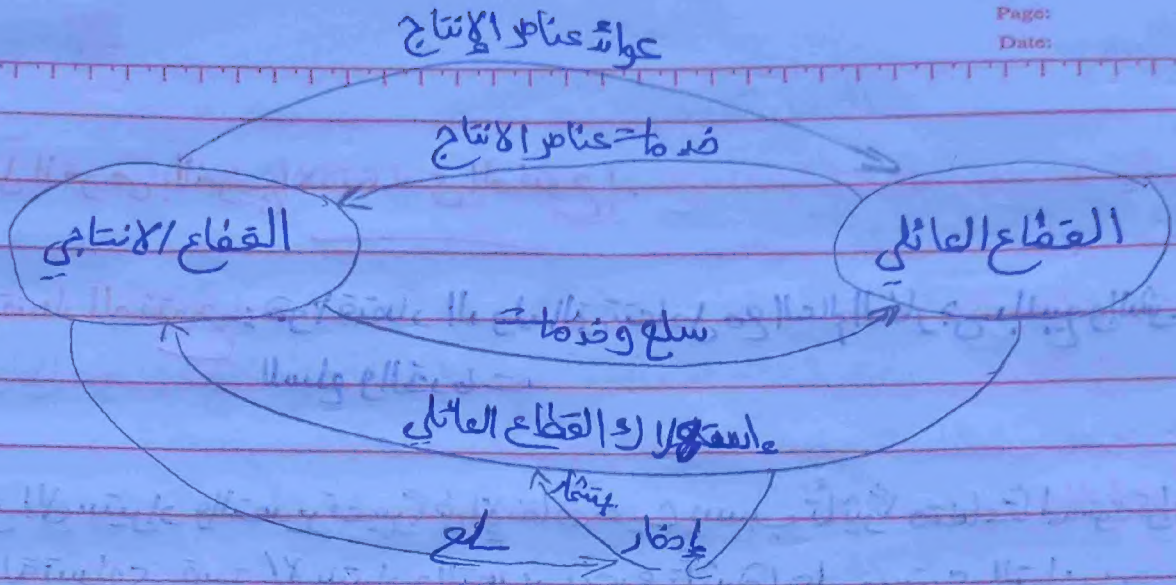 Page:
Date:
عوائد عناصر الإنتاج
خدمات عناصر الانتاج
القطاع العائلي
القطاع الانتاجي
سلع وخدمات
استهلاك القطاع العائلي
إدخار
سلع